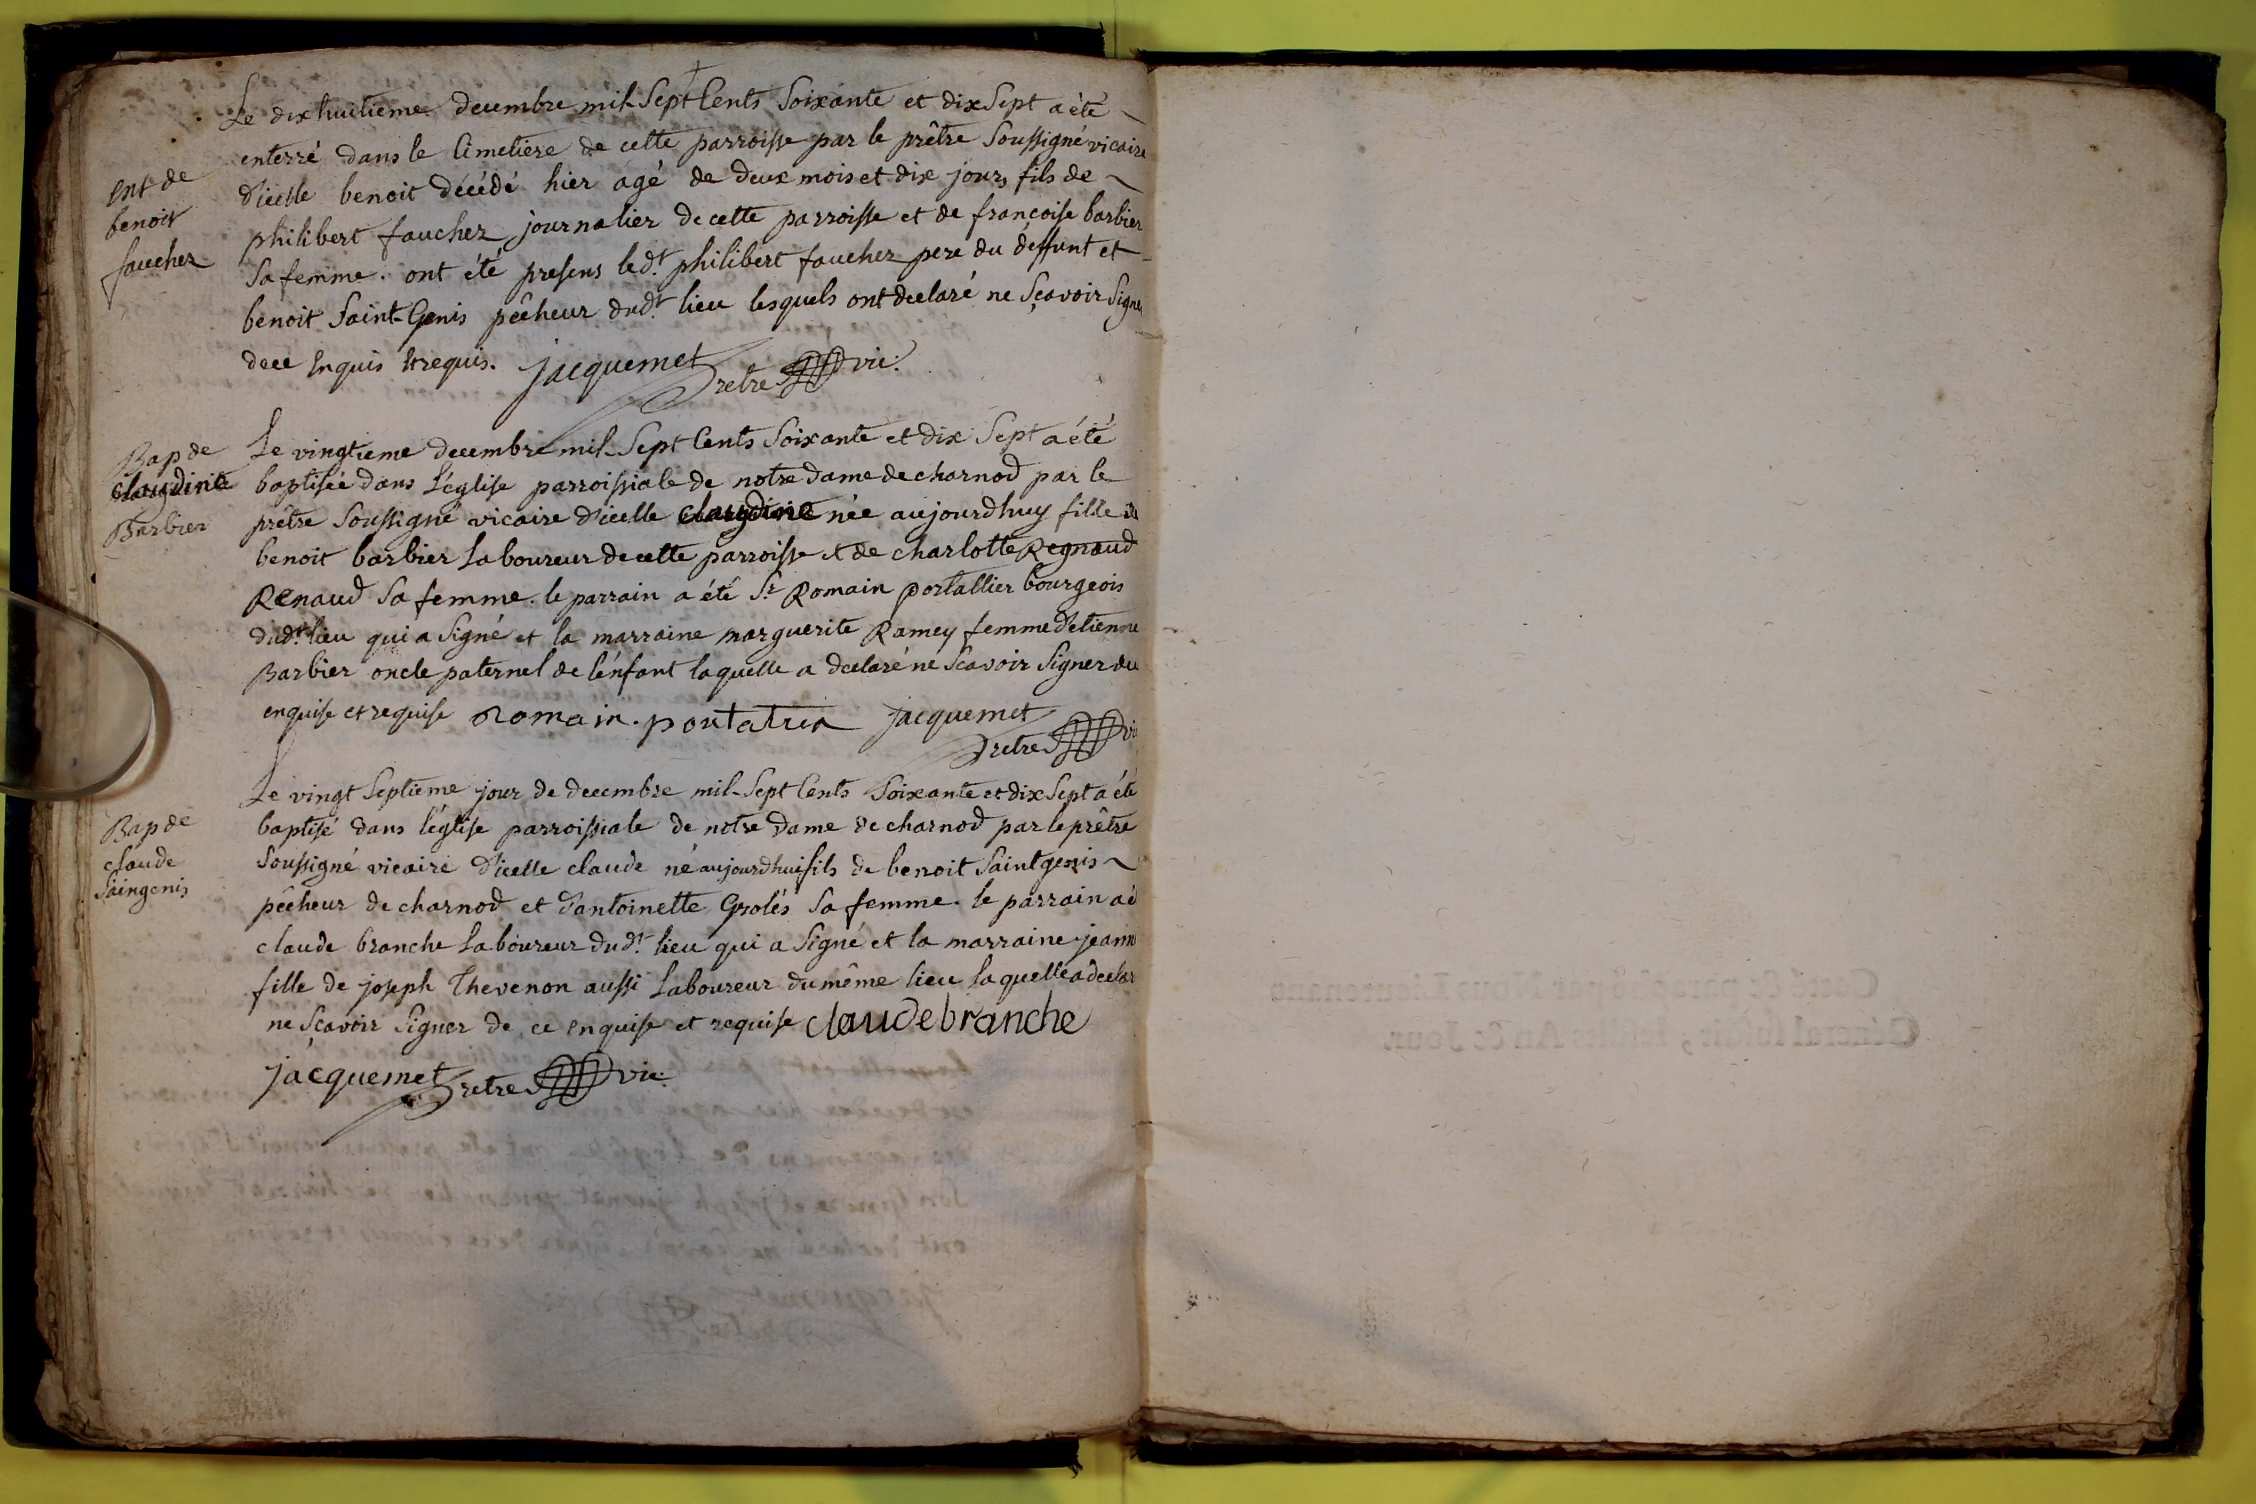 Le dixhuitieme decembre mil Sept Cents Soixante et dix Sept a été
enterré dans le Cimetiere de cette parroisse par le prêtre Soussigné vicaire
d'icelle benoit décédé hier âgé de deux mois et dix jours fils de
philibert fauchez journalier de cette parroisse et de françoise barbier
Sa femme. ont été presens led.t philibert fauchez pere du deffunt et
benoit Saint-Genis pêcheur dud.t lieu lesquels ont declaré ne Sçavoir Signer
dece Enquis et requis. jacquemet Pretre vic:
Ent de
benoit
fauchez
Le vingtieme decembre mil Sept Cents Soixante et dix Sept a été
baptisée dans L'église parroissiale de notre dame de charnod par le
prêtre Soussigné vicaire d'icelle claudine née aujourdhuy fille de
benoit barbier Laboureur de cette parroisse et de charlotte Regnaud
Renaud Sa femme. le parrain a été S.r Romain portallier bourgeois
dud.t lieu qui a Signé et la marraine marguerite Ramey femme d'etienne
Barbier oncle paternel de l'énfant laquelle a declaré ne Scavoir Signer de
enquise et requise Romain. jacquemet
Pretre vic
Bap de
claudine
Barbier
Le vingt Septieme jour de decembre mil Sept Cents Soixante et dix Sept a été
baptisé dans l'église parroissiale de notre dame de charnod par le prêtre
Soussigné vicaire d'icelle claude né aujourdhui fils de benoit Saintgenis
pêcheur de charnod et d'antoinette Grolés Sa femme. le parrain a é
claude branche Laboureur dud.t lieu qui a Signé et la marraine jeanne
fille de joseph Thevenon aussi Laboureur du même lieu laquelle a declar
ne Sçavoir Signer de ce enquise et requise claude branche
jacquemet Pretre vic:
Bap de
claude
Saingenis